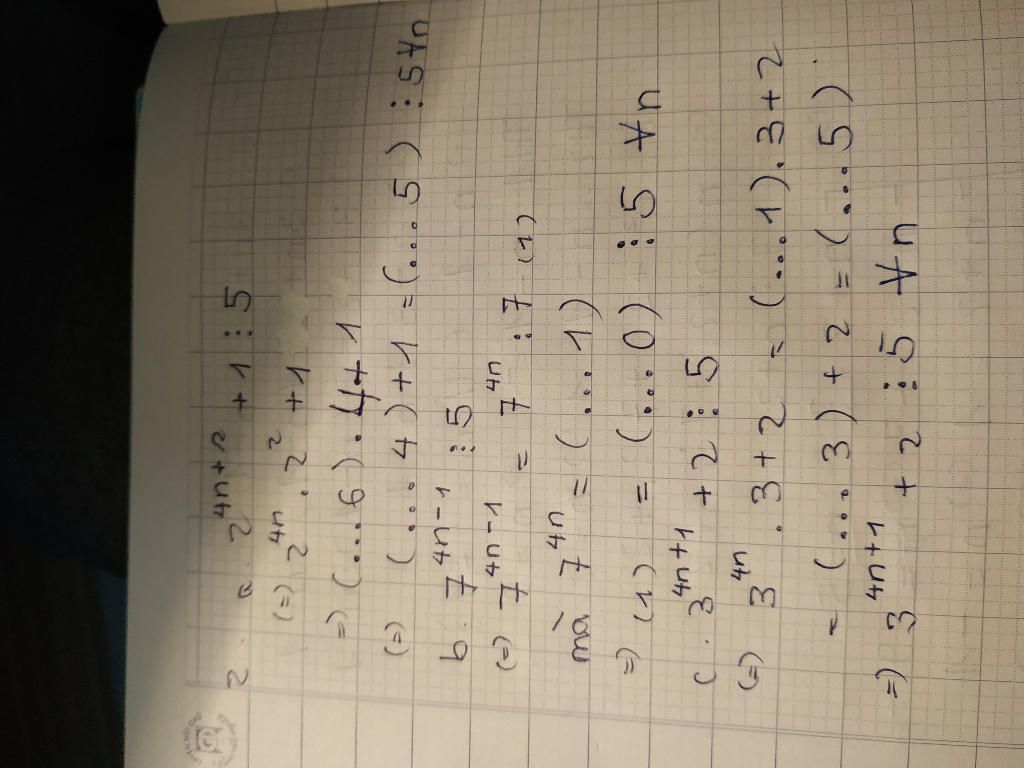 2. a. 2^4n+2 + 1 ⋮ 5
(=) 2^4n . 2^2 + 1
=) (...6) . 4 + 1
(=) (...4) + 1 = (...5) ⋮ 5 ∀n
b. 7^4n-1 ⋮ 5
(=) 7^4n-1 = 7^4n : 7 (1)
mà 7^4n = (...1)
=) (1) = (...0) ⋮ 5 ∀n
c. 3^4n+1 + 2 ⋮ 5
(=) 3^4n . 3 + 2 = (...1) . 3 + 2
= (...3) + 2 = (...5)
=) 3^4n+1 + 2 ⋮ 5 ∀n